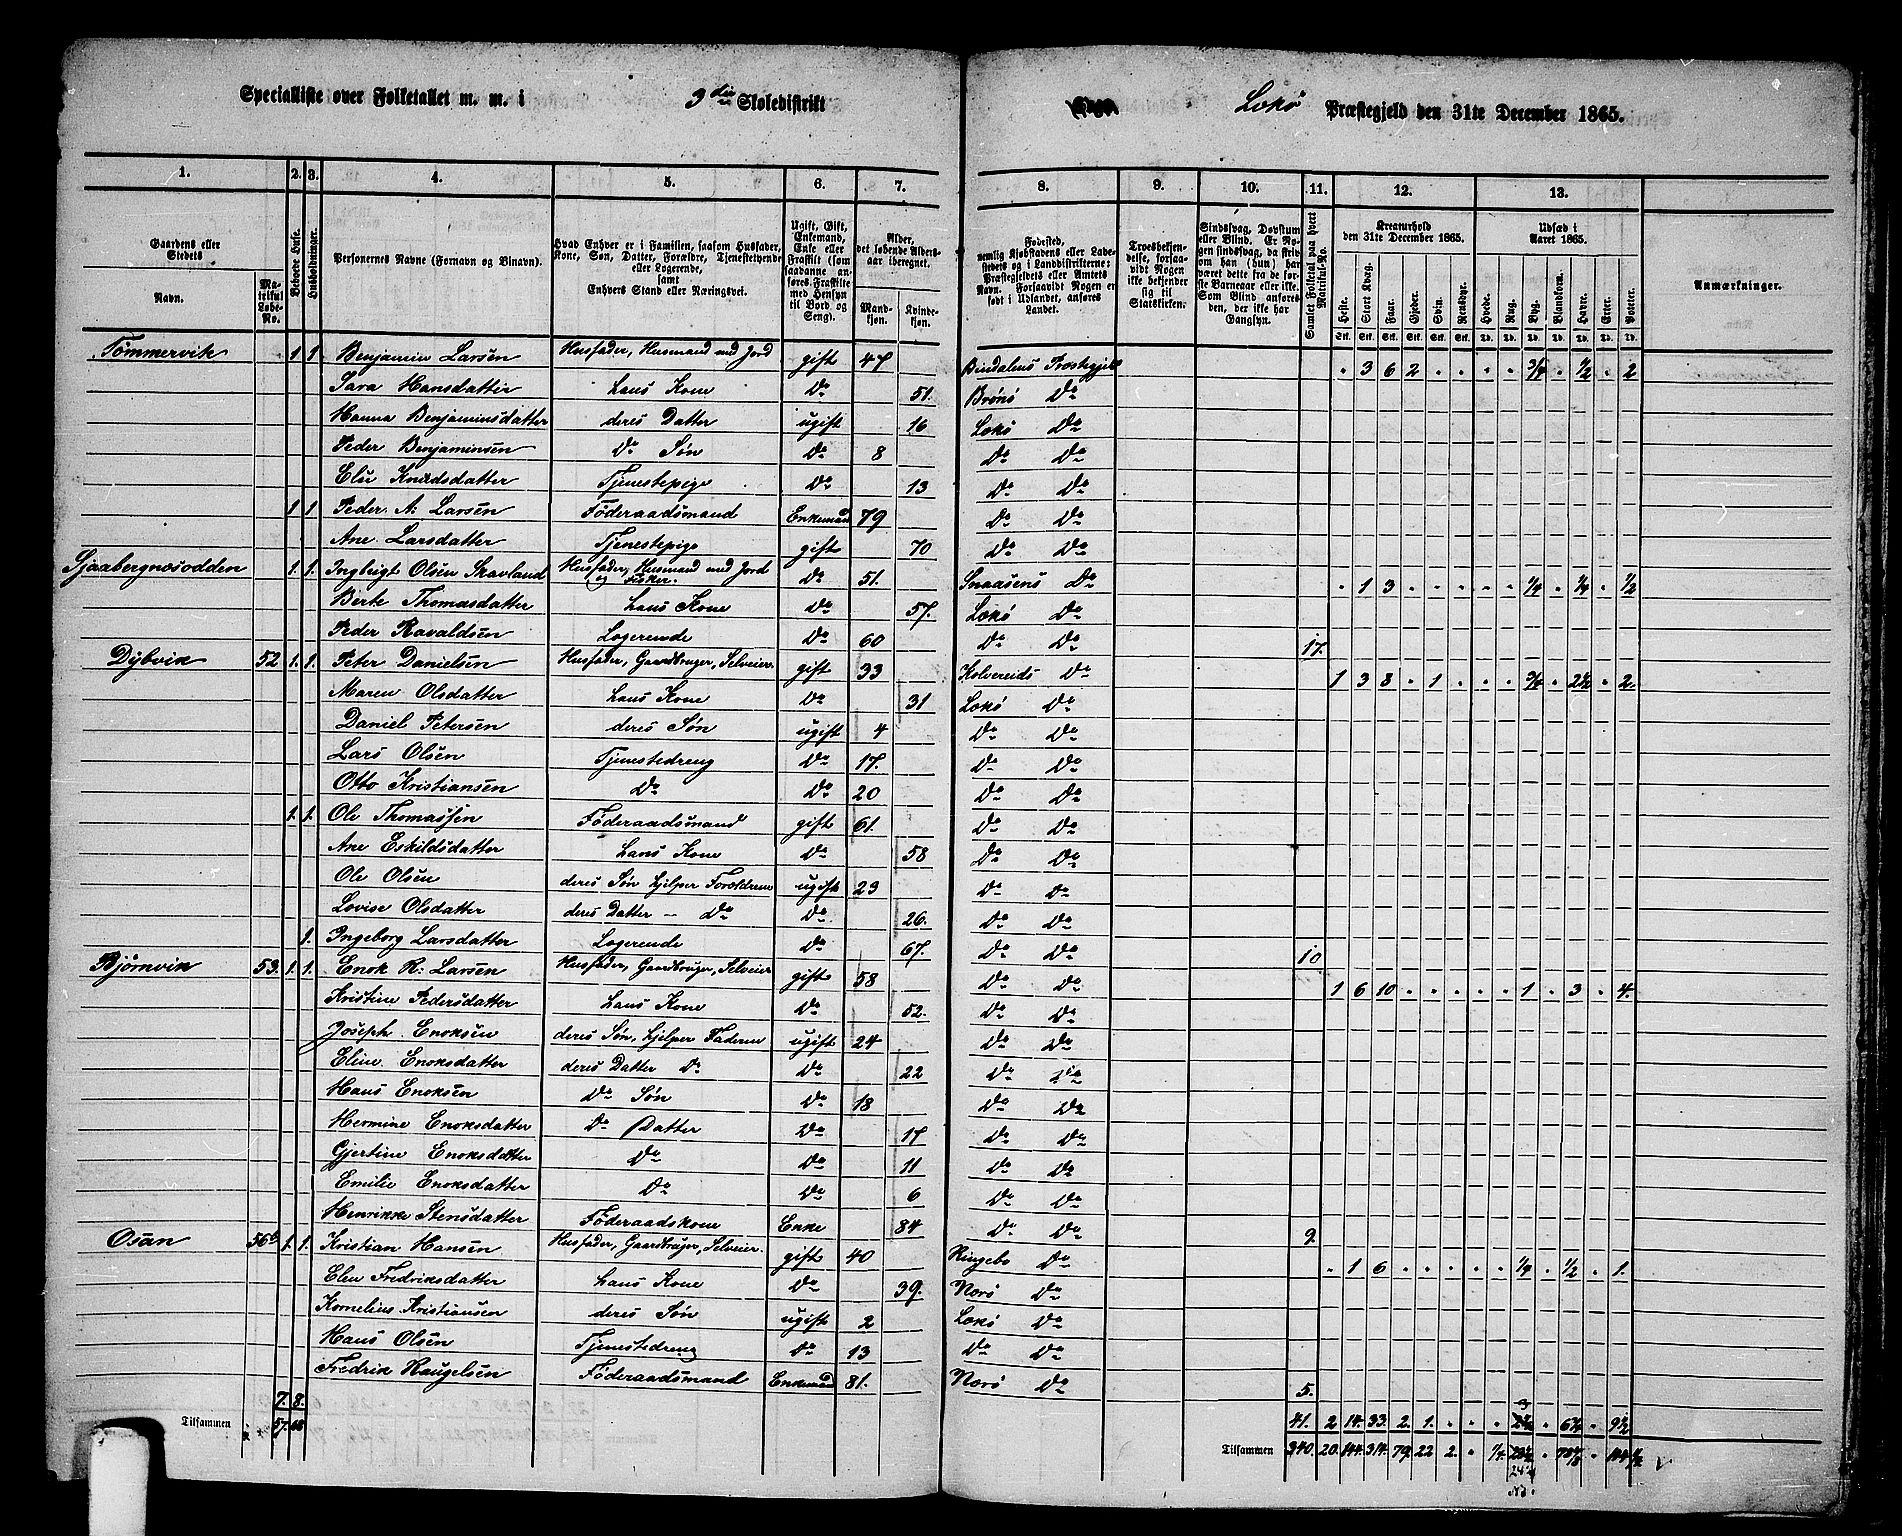 Specialliste over Folketallet m. m. i 3die Skoledistrikt Lekø Præstegjeld den 31te December 1865.
1. 2. 3. 4. 5. 6. 7. 8. 9. 10. 11. 12. 13.
Gaardens eller Stedets Navn. Matrikul Løbe-No. Beboede Huse. Husholdninger. Personernes Navne (Fornavn og Binavn). Hvad Enhver er i Familien, saasom Husfader, Kone, Søn, Datter, Forældre, Tjenestetyende eller Logerende, samt Enhvers Stand eller Næringsvei. Ugift, Gift, Enkemand, Enke eller Fraskilt (som saadanne anføres Fraskilte med Hensyn til Bord og Seng). Alder, det løbende Alders-aar iberegnet. Mandkjøn. Kvindekjøn.
Fødested, nemlig Kjøbstadens eller Ladestedets og i Landdistrikterne: Præstegjeldets eller Amtets Navn. Forsaavidt Nogen er født i Udlandet, anføres Landet. Troesbekjendelse, forsaavidt Nogen ikke bekjender sig til Statskirken. Sindssvag, Døvstum eller Blind. Er Nogen sindssvag, da skriv om han (hun) har været dette fra de første Barneaar eller ikke. Som Blind anføres den, der ikke har Gangsyn. Samlet Folketal paa hvert Matrikul-No. Kreaturhold den 31te December 1865. Udsæd i Aaret 1865. Anmærkninger.
Heste. Stort Kvæg. Faar. Gjeder. Svin. Rensdyr. Hvede. Rug. Byg. Blandkorn. Havre. Erter. Poteter.
Stk. Stk. Stk. Stk. Stk. Stk. Td. Td. Td. Td. Td. Td. Td.
Tømmervik 1 1 Benjamin Larsen Husfader, Husmand med Jord gift 47 Bindalens Præstegjeld 3 6 2 3/4 1/2 2
Sara Hansdatter hans Kone Do 51. Brønø Do
Hanna Benjaminsdatter deres Datter ugift 16 Lekø Do
Peder Benjaminsen Do Søn Do 8 Do Do
Elii Knudsdatter Tjenestepige Do 13 Do Do
1 1. Peder A: Larsen Føderaadsmand Enkemand 79 Do Do
Ane Larsdatter Tjenestepige gift 70 Do Do
Sjaabergnæsodden 1. 1. Ingbrigt Olsen Skavland Husfader, Husmand med Jord og Fisker. Do 51. Snaasens Do 1 3 1/4 1/4 1/2
Berte Thomasdatter hans Kone Do 57. Lekø Do
Peder Ravaldsen Logerende Do 60 Do Do 17.
Dybvik 52 1. 1. Peter Danielsen Husfader, Gaardbruger, Selveier. gift 33 Kolvereids Do 1 3 8 1 3/4 2 1/2 2.
Maren Olsdatter hans Kone Do 31 Lekø Do
Daniel Petersen deres Søn ugift 4 Do Do
Lars Olsen Tjenestedreng Do 17. Do Do
Otto Kristiansen Do Do 20 Do Do
1. 1. Ole Thomassen Føderaadsmand gift 61. Do Do
Ane Eskildsdatter hans Kone Do 58 Do Do
Ole Olsen deres Søn hjelper Forældrene ugift 23 Do Do
Lovise Olsdatter deres Datter — Do Do 26. Do Do
1. Ingeborg Larsdatter Logerende Do 67. Do Do 10
Bjørnvik 53. 1. 1. Enok R: Larsen Husfader, Gaardbruger, Selveier gift 58 Do Do 1 6 10 1 3 4.
Kristine Pedersdatter hans Kone Do 52. Do Do
Joseph Enoksen deres Søn, hjelper Faderen ugift 24 Do Do
Eline Enoksdatter deres Datter Do Do 22 Do Do
Hans Enoksen Do Søn Do 18 Do Do
Hermine Enoksdatter Do Datter Do 17 Do Do
Gjertine Enoksdatter Do Do 11 Do Do
Emilie Enoksdatter Do Do 6 Do Do
Henrikke Stensdatter Føderaadskone Enke 84 Do Do 9.
Osan 56b 1. 1. Kristian Hansen Husfader, Gaardbruger, Selveier. gift 40 Ringebo Do 1 6 1/4 1/2 1.
Elen Fredriksdatter hans Kone Do 39. Nærø Do
Kornelius Kristiansen deres Søn ugift 2 Lekø Do
Hans Olsen Tjenestedreng Do 13 Do Do
Fredrik Haugelsen Føderaadsmand Enkemand 81. Nærø Do 5.
7. 8. 41. 2 14. 33. 2. 1. 6 3/4 9 1/2
Tilsammen 57. 68 Tilsammen 340. 20. 144. 314. 79. 22 2.